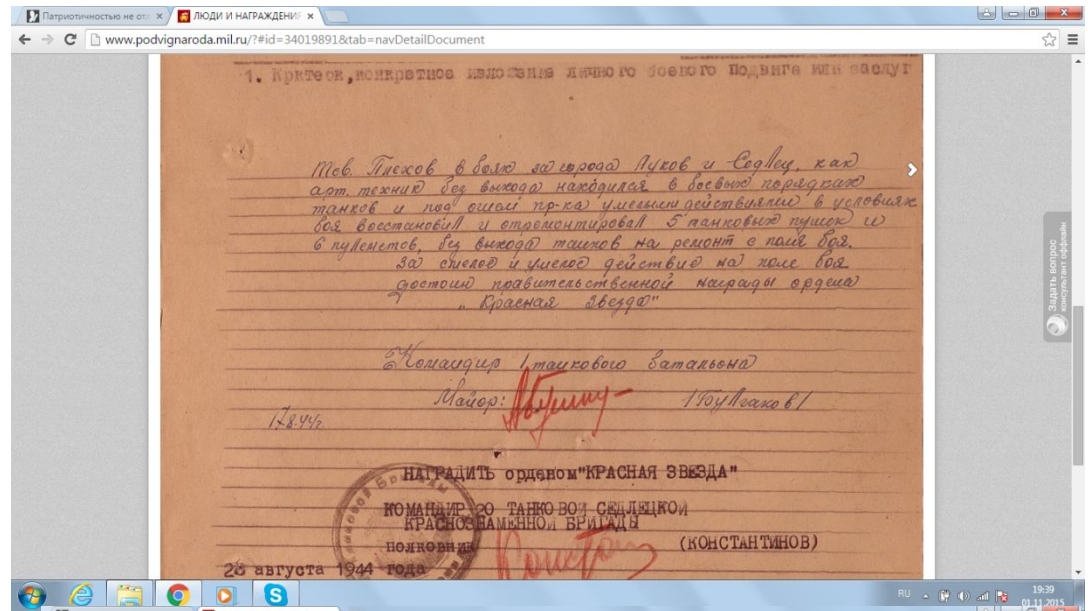 Патриотичностью не отл
ЛЮДИ И НАГРАЖДЕНИ
www.podvignaroda.mil.ru/?#id=34019891&tab=navDetailDocument
1. Краткое, конкретное изложение личного боевого подвига или заслуг
Тов. Плехов в боях за города Луков и Седлец, как
арт. техник без выхода находился в боевых порядках
танков и под огнем пр-ка умелыми действиями в условиях
боя восстановил и отремонтировал 5 танковых пушек и
6 пулеметов, без выхода танков на ремонт с поля боя.
За смелое и умелое действие на поле боя
достоин правительственной награды ордена
"Красная Звезда"
Командир 1 танкового батальона
Майор: /Булгаков/
17.8.44г.
НАГРАДИТЬ орденом "КРАСНАЯ ЗВЕЗДА"
КОМАНДИР 20 ТАНКОВОЙ СЕДЛЕЦКОЙ
КРАСНОЗНАМЕННОЙ БРИГАДЫ
полковник (КОНСТАНТИНОВ)
28 августа 1944 года
Задать вопрос
консультант оффлайн
RU
19:39
01.11.2015